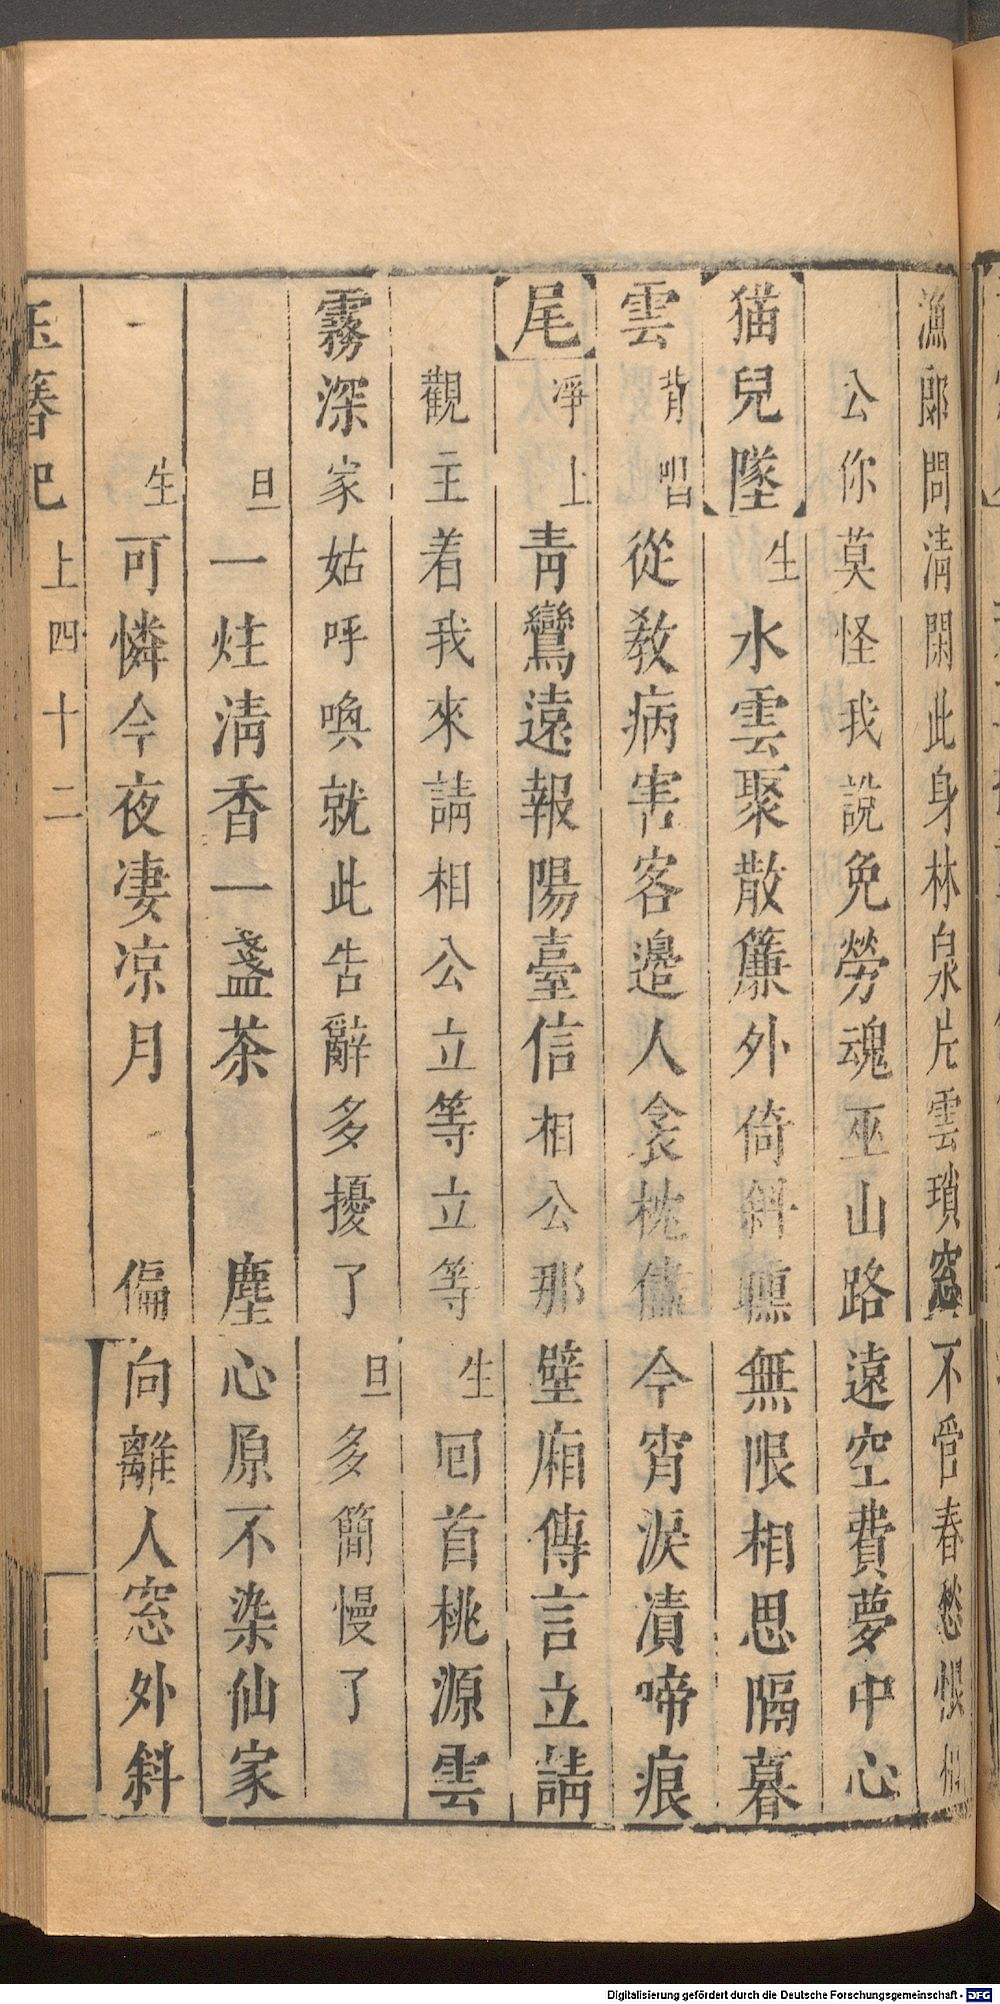 漁郎問清閑此身林泉片雲瑣窓不管春愁恨相
公你莫怪我說免勞魂巫山路遠空費夢中心
猫兒墜生水雲聚散簾外倚斜曛無限相思隔暮
雲背唱從教病害客邊人衾枕儘今宵淚漬啼痕
尾凈上青鸞遠報陽臺信相公那壁廂傳言立請
觀主着我來請相公立等立等生回首桃源雲
霧深家姑呼喚就此告辭多擾了旦多簡慢了
旦一炷清香一盞茶 塵心原不染仙家
生可憐今夜凄凉月 偏向離人窓外斜
玉簪記 上四十二
Digitalisierung gefördert durch die Deutsche Forschungsgemeinschaft - DFG